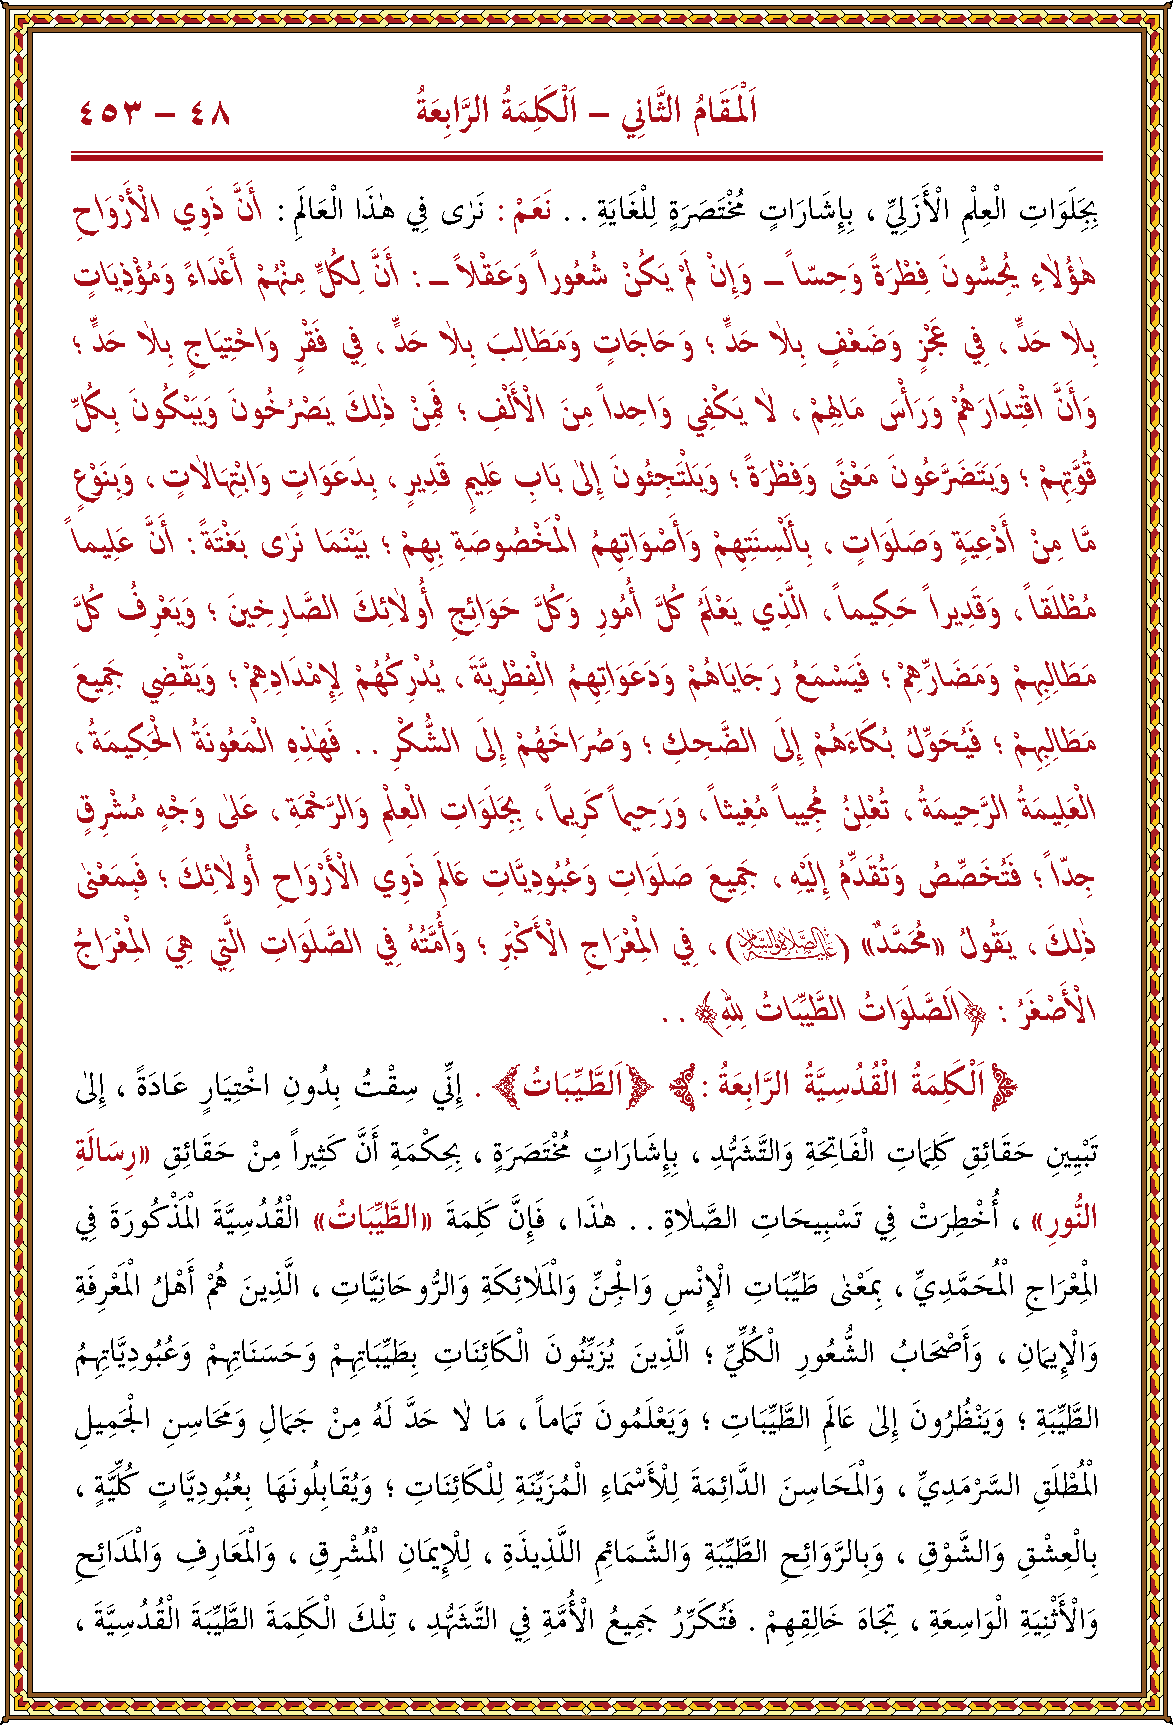 اَلْمَقَامُ الثَّانِي – اَلْكَلِمَةُ الرَّابِعَةُ ٤٨ – ٤٥٣
بِجَلَوَاتِ الْعِلْمِ الْأَزَلِيِّ ، بِإِشَارَاتٍ مُخْتَصَرَةٍ لِلْغَايَةِ . . نَعَمْ : نَرٰى فِي هٰذَا الْعَالَمِ : أَنَّ ذَوِي الْأَرْوَاحِ
هٰؤُلَاءِ يُحُسُّونَ فِطْرَةً وَحِسّاً ـ وَإِنْ لَمْ يَكُنْ شُعُوراً وَعَقْلاً ـ : أَنَّ لِكُلٍّ مِنْهُمْ أَعْدَاءً وَمُؤْذِيَاتٍ
بِلَا حَدٍّ ، فِي عَجْزٍ وَضَعْفٍ بِلَا حَدٍّ ؛ وَحَاجَاتٍ وَمَطَالِبَ بِلَا حَدٍّ ، فِي فَقْرٍ وَاحْتِيَاجٍ بِلَا حَدٍّ ؛
وَأَنَّ اقْتِدَارَهُمْ وَرَأْسَ مَالِهِمْ ، لَا يَكْفِي وَاحِداً مِنَ الْأَلْفِ ؛ فَمِنْ ذٰلِكَ يَصْرُخُونَ وَيَبْكُونَ بِكُلِّ
قُوَّتِهِمْ ؛ وَيَتَضَرَّعُونَ مَعْنًى وَفِطْرَةً ؛ وَيَلْتَجِئُونَ إِلٰى بَابِ عَلِيمٍ قَدِيرٍ ، بِدَعَوَاتٍ وَابْتِهَالَاتٍ ، وَبِنَوْعٍ
مَّا مِنْ أَدْعِيَةٍ وَصَلَوَاتٍ ، بِأَلْسِنَتِهِمْ وَأَصْوَاتِهِمُ الْمَخْصُوصَةِ بِهِمْ ؛ بَيْنَمَا نَرٰى بَغْتَةً : أَنَّ عَلِيماً
مُطْلَقاً ، وَقَدِيراً حَكِيماً ، الَّذِي يَعْلَمُ كُلَّ أُمُورِ وَكُلَّ حَوَائِجِ أُولٰئِكَ الصَّارِخِينَ ؛ وَيَعْرِفُ كُلَّ
مَطَالِبِهِمْ وَمَضَارِّهِمْ ؛ فَيَسْمَعُ رَجَايَاهُمْ وَدَعَوَاتِهِمُ الْفِطْرِيَّةَ ، يُدْرِكُهُمْ لِإِمْدَادِهِمْ ؛ وَيَقْضِي جَمِيعَ
مَطَالِبِهِمْ ؛ فَيُحَوِّلُ بُكَاءَهُمْ إِلَى الضَّحِكِ ؛ وَصُرَاخَهُمْ إِلَى الشُّكْرِ . . فَهٰذِهِ الْمَعُونَةُ الْحَكِيمَةُ ،
الْعَلِيمَةُ الرَّحِيمَةُ ، تُعْلِنُ مُجِيباً مُغِيثاً ، وَرَحِيماً كَرِيماً ، بِجَلَوَاتِ الْعِلْمِ وَالرَّحْمَةِ ، عَلٰى وَجْهٍ مُشْرِقٍ
جِدّاً ؛ فَتُخَصِّصُ وَتُقَدِّمُ إِلَيْهِ ، جَمِيعَ صَلَوَاتِ وَعُبُودِيَّاتِ عَالَمِ ذَوِي الْأَرْوَاحِ أُولَائِكَ ؛ فَبِمَعْنٰى
ذٰلِكَ ، يَقُولُ «مُحَمَّدٌ» (عَلَيْهِ الصَّلَاةُ وَالسَّلَامُ) ، فِي الْمِعْرَاجِ الْأَكْبَرِ ؛ وَأُمَّتُهُ فِي الصَّلَوَاتِ الَّتِي هِيَ الْمِعْرَاجُ
الْأَصْغَرُ : ﴿اَلصَّلَوَاتُ الطَّيِّبَاتُ لِلّٰهِ﴾ . .
﴿اَلْكَلِمَةُ الْقُدُسِيَّةُ الرَّابِعَةُ :﴾ ﴿اَلطَّيِّبَاتُ﴾ . إِنِّي سِقْتُ بِدُونِ اخْتِيَارٍ عَادَةً ، إِلٰى
تَبْيِينِ حَقَائِقِ كَلِمَاتِ الْفَاتِحَةِ وَالتَّشَهُّدِ ، بِإِشَارَاتٍ مُخْتَصَرَةٍ ، بِحِكْمَةِ أَنَّ كَثِيراً مِنْ حَقَائِقِ «رِسَالَةِ
النُّورِ» ، أُخْطِرَتْ فِي تَسْبِيحَاتِ الصَّلَاةِ . . هٰذَا ، فَإِنَّ كَلِمَةَ «الطَّيِّبَاتُ» الْقُدُسِيَّةَ الْمَذْكُورَةَ فِي
الْمِعْرَاجِ الْمُحَمَّدِيِّ ، بِمَعْنٰى طَيِّبَاتِ الْإِنْسِ وَالْجِنِّ وَالْمَلَائِكَةِ وَالرُّوحَانِيَّاتِ ، الَّذِينَ هُمْ أَهْلُ الْمَعْرِفَةِ
وَالْإِيمَانِ ، وَأَصْحَابُ الشُّعُورِ الْكُلِّيِّ ؛ الَّذِينَ يُزَيِّنُونَ الْكَائِنَاتِ بِطَيِّبَاتِهِمْ وَحَسَنَاتِهِمْ وَعُبُودِيَّاتِهِمُ
الطَّيِّبَةِ ؛ وَيَنْظُرُونَ إِلٰى عَالَمِ الطَّيِّبَاتِ ؛ وَيَعْلَمُونَ تَمَاماً ، مَا لَا حَدَّ لَهُ مِنْ جَمَالِ وَمَحَاسِنِ الْجَمِيلِ
الْمُطْلَقِ السَّرْمَدِيِّ ، وَالْمَحَاسِنَ الدَّائِمَةَ لِلْأَسْمَاءِ الْمُزَيِّنَةِ لِلْكَائِنَاتِ ؛ وَيُقَابِلُونَهَا بِعُبُودِيَّاتٍ كُلِّيَّةٍ ،
بِالْعِشْقِ وَالشَّوْقِ ، وَبِالرَّوَائِحِ الطَّيِّبَةِ وَالشَّمَائِمِ اللَّذِيذَةِ ، لِلْإِيمَانِ الْمُشْرِقِ ، وَالْمَعَارِفِ وَالْمَدَائِحِ
وَالْأَثْنِيَةِ الْوَاسِعَةِ ، تِجَاهَ خَالِقِهِمْ . فَتُكَرِّرُ جَمِيعُ الْأُمَّةِ فِي التَّشَهُّدِ ، تِلْكَ الْكَلِمَةَ الطَّيِّبَةَ الْقُدُسِيَّةَ ،